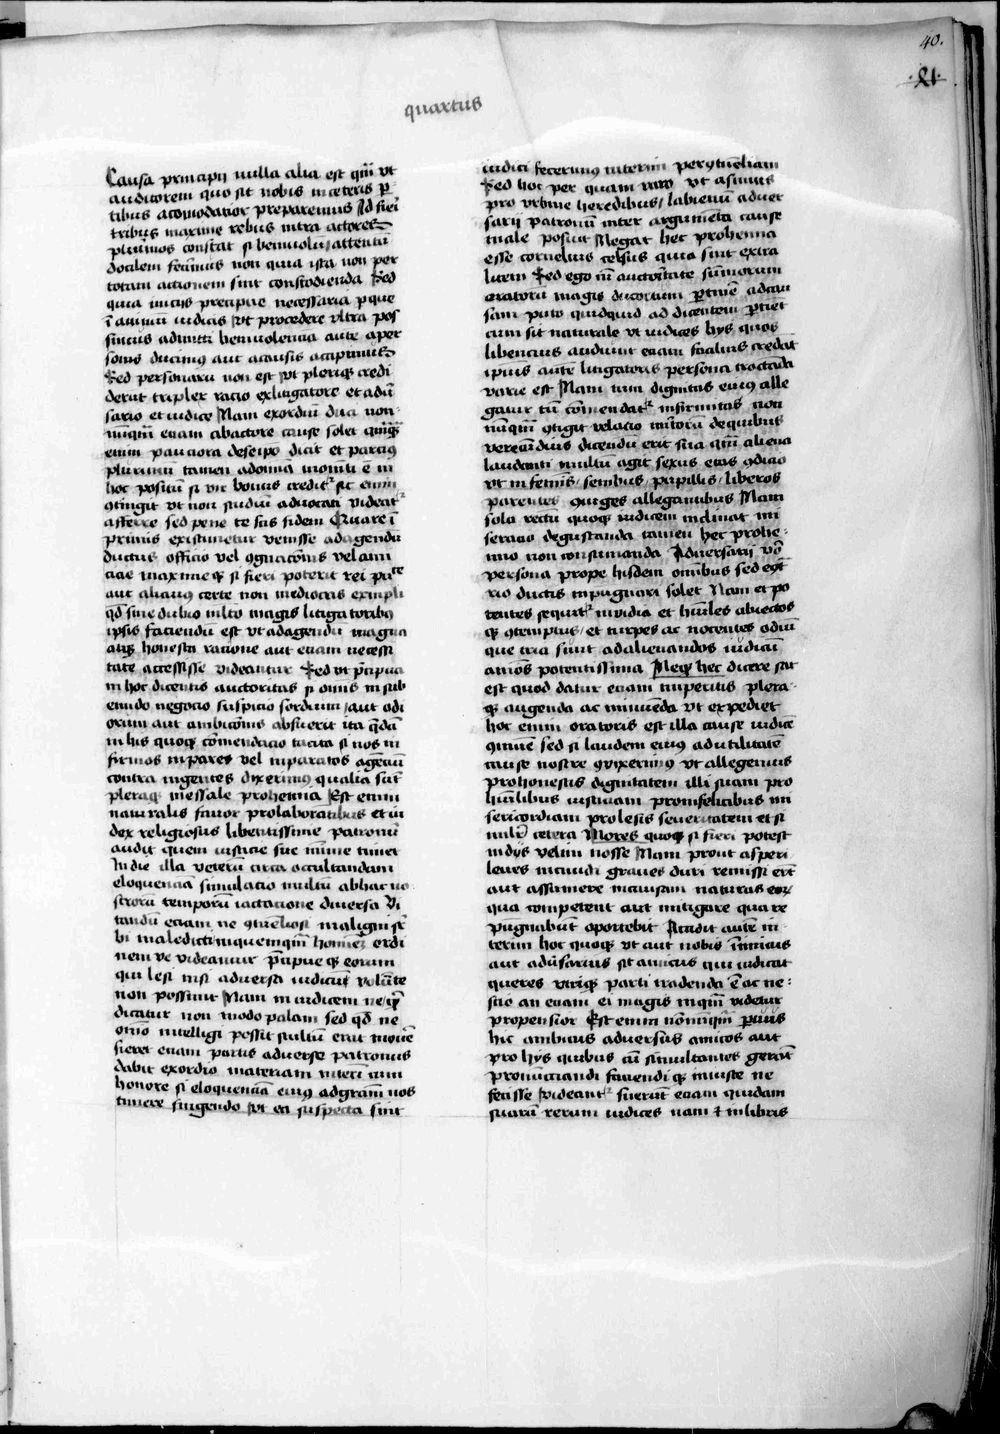 40.
.xl.
quartus
Causa principij nulla alia est qm̄ vt
auditorem quo sit nobis in ceteris p̄
tibus acomodatior preparemus Id fieri
tribus maxime rebus intra actores
plurimos constat si beniuolū / attentū
docilem fecimus non quia ista non per
totam actionem sint custodienda Sed
quia inicijs precipue necessaria p que
ī animū iudicis vt procedere vltra pos
simus admitti beniuolencia aute a per
sonis ducimus aut a causis accipimus
Sed personarū non est vt pleriqꝫ credi
derūt triplex racio ex litigatore et adū
sario et iudice Nam exordiū duci non
nūqm̄ etiam ab actore cause solet qm̄qꝫ
enim pauciora de se ipo dicit et parcius
plurimū tamen ad omia momēti ē in
hoc positū si vir bonus creditᷣ sic enim
ꝯtingit vt non studiū aduocati videatᷣ
afferre sed pene testis fidem Quare ī
primis existimetur venisse ad agendū
ductus officio vel ꝯgnacōnis vel ami
cicie maximeqꝫ si fieri poterit rei pu͡ce
aut alicuius certe non mediocris exempli
qd̄ sine dubio mlto magis litigatoribꝰ
ipsis faciendū est vt ad agendū magna
atqꝫ honesta racione aut etiam necessi
tate accessisse videantur Sed vt p̄cipua
in hoc dicentis auctoritas si omis in sub
eundo negocio suspicio sordium / aut odi
orum aut ambicōnis abfuerit ita q̄dā
in his quoqꝫ cōmendacio tacita si nos in
firmos inpares vel inparatos agēciū
contra ingenies dixerimus qualia sūt
pleraqꝫ messale prohemia Est enim
naturalis fauor pro laborātibus et iu
dex religiosus libentissime patronū
audit quem iusticie sue mīme timet
Inde illa veterū circa occultandam
eloquenciā simulacio multū ab hac no
strorū temporū iactacione diuersa Vi
tandū etiam ne ꝯtūeliosi maligni sr̄
bi maledicti in quemqm̄ hominē ordi
nem ve videamur p̄cipueqꝫ eorum
qui lesi nisi aduersa iudicūt volūtate
non possunt Nam in iudicem ne qd̄
dicatur non modo palam sed qd̄ ne
omīo intelligi possit stultū erat monē
fieret etiam partis aduerse patronus
dabit exordio materiam interī cum
honore si eloquenciā eius ad gram̄ nos
timere fingendo vt ea suspecta sint
iudici fecerimus interim per ꝯtūeliam
Sed hoc per quam raro vt asinius
pro vrbine heredibus / labienū aduer
sarij patronū inter argumēta cause
male posuit Negat hec prohemia
esse cornelius celsus quia sint extra
litem Sed ego cū auctoritate sūmorum
oratorū magis ducorum p̄tinē ad cau
sam puto quidquid ad dicentem p̄tinet
cum sit naturale vt iudices hijs quos
libencius audiunt etiam facilius credāt
ipius autē litigatoris persona tractāda
varie est Nam tum dignitas eius alle
gatur tū cōmendatᷣ infirmitas non
nūqm̄ ꝯtigit relacio mītorū de quibus
verecūdius dicendū erit sua qm̄ aliena
laudanti multū agit sexus etas ꝯdicio
vt in feminis / senibus / pupillis / liberos
parentes coiuges allegantibus Nam
sola rectū quoqꝫ iudicem inclinat mi
seracio degustanda tamen hec prohe
mio non consumanda Aduersarij vō
persona prope hisdem omībus sed eqͦt
rio ductis inpugnari solet Nam et po
tentes sequitᷣ inuidia et hūiles abiectos
qꝫ ꝯtemptus / et turpes ac nocentes odiū
que tria sunt ad alienandos iudicū
aniōs potentissima Neqꝫ hec dicere sat
est quod datur etiam imperitis plera
qꝫ augenda ac minuēda vt expediet
hoc enim oratoris est illa cause iudicē
ꝯmunē sed si laudem eius ad vtilitatē
cause nostre ꝯuixerimꝰ vt allegemus
pro honestis dignitatem illi suam pro
hūilibus iusticiam pro infelicibus mi
sericordiam pro lesis seueritatem et si
milit̄ cetera Mores quoqꝫ si fieri potest
iudijs velim nosse Nam prout asperi
leues iocundi graues duri remissi erūt
aut assumere in causam naturas eoꝝ
qua competent aut mitigare qua re
pugnabūt oportebit Accidit autē in
terim hoc quoqꝫ vt aut nobis īimicus
aut adūsarijs sit amicus qui iudicat
queres vtriqꝫ parti tradenda ē ac ne
scio an etiam ei magis in qm̄ videtur
propensior Est enim nōnūqm̄ prauis
hic ambitus aduersus amicos aut
pro hijs quibus cū simultates gerāt
pronūciandi faciendiqꝫ iniuste ne
fecisse videantᷣ fuerūt etiam quidam
suarū rerum iudices nam ⁊ in libris